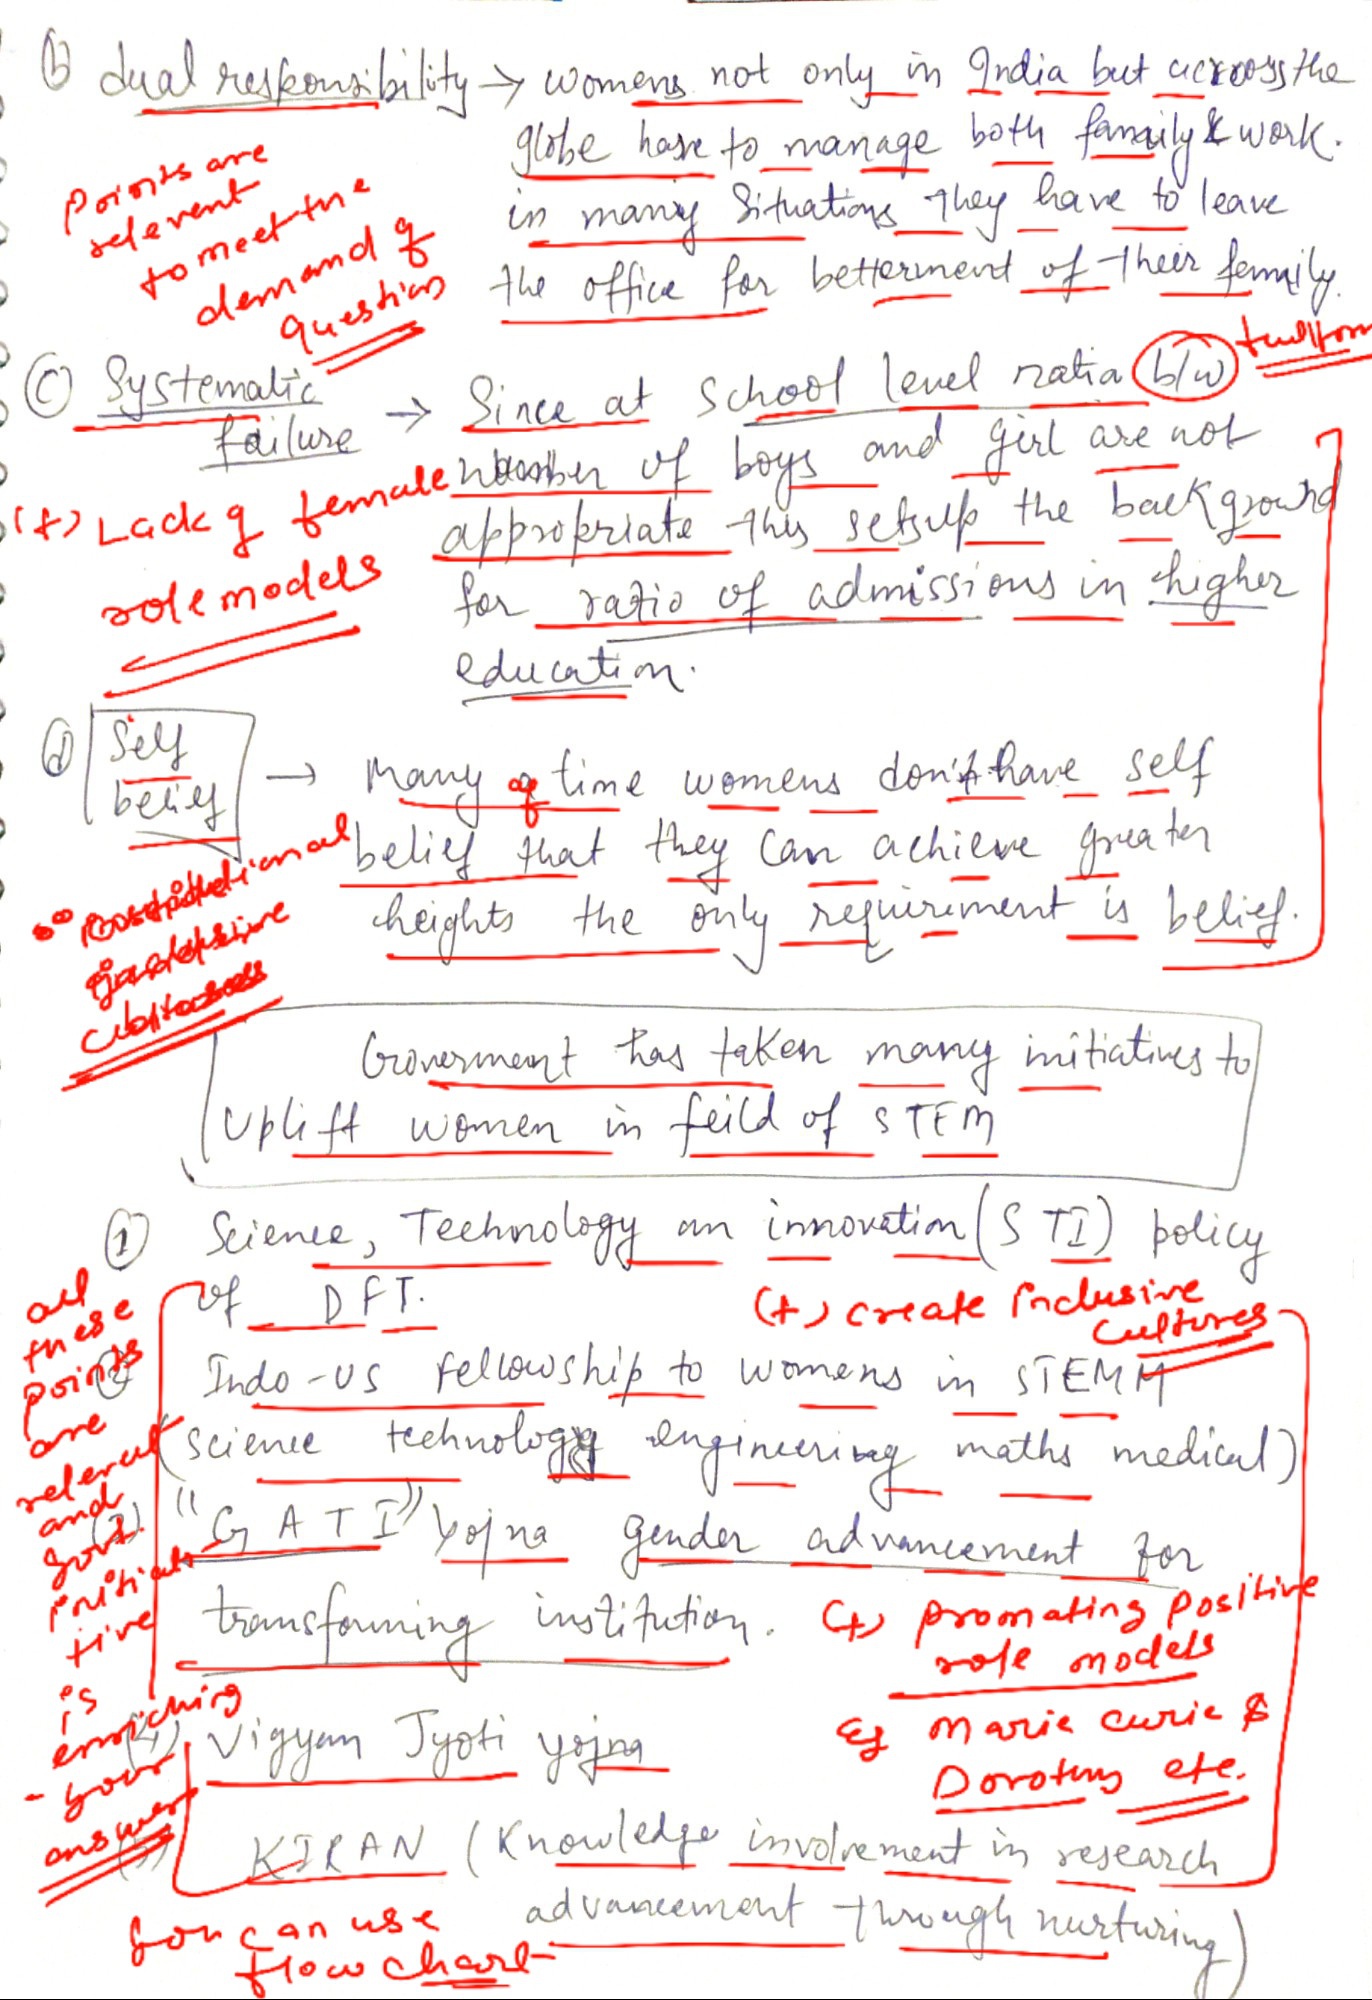 (b) dual responsibility → womens not only in India but acrross the
globe have to manage both family & work.
in many situations they have to leave
the office for betterment of their family.
Points are
relevent
to meet the
demand of
question
(c) Systematic
failure → Since at school level ratia b/w
full form
number of boys and girl are not
appropriate this setsup the background
for ratio of admissions in higher
education.
(+) Lack of female
role models
(d) Self
belief → Many of time womens don't have self
belief that they can achieve greater
heights the only requirement is belief.
Goverment has taken many initiatives to
uplift women in feild of STEM
(1) Science, Technology an innovation (STI) policy
of DFT.
(+) create inclusive
cultures
(2) Indo-US fellowship to womens in STEMM
(science technology engineering maths medical)
(3) "GATI" yojna gender advancement for
transforming institution.
(+) promating positive
role models
Eg Marie curie &
Dorothy etc.
(4) Vigyan Jyoti yojna
(5) KIRAN (Knowledge involvement in research
advancement through nurturing)
all
these
points
are
relevent
and
govt.
initia
tive
is
enriching
- your
answer
You can use
flow chart